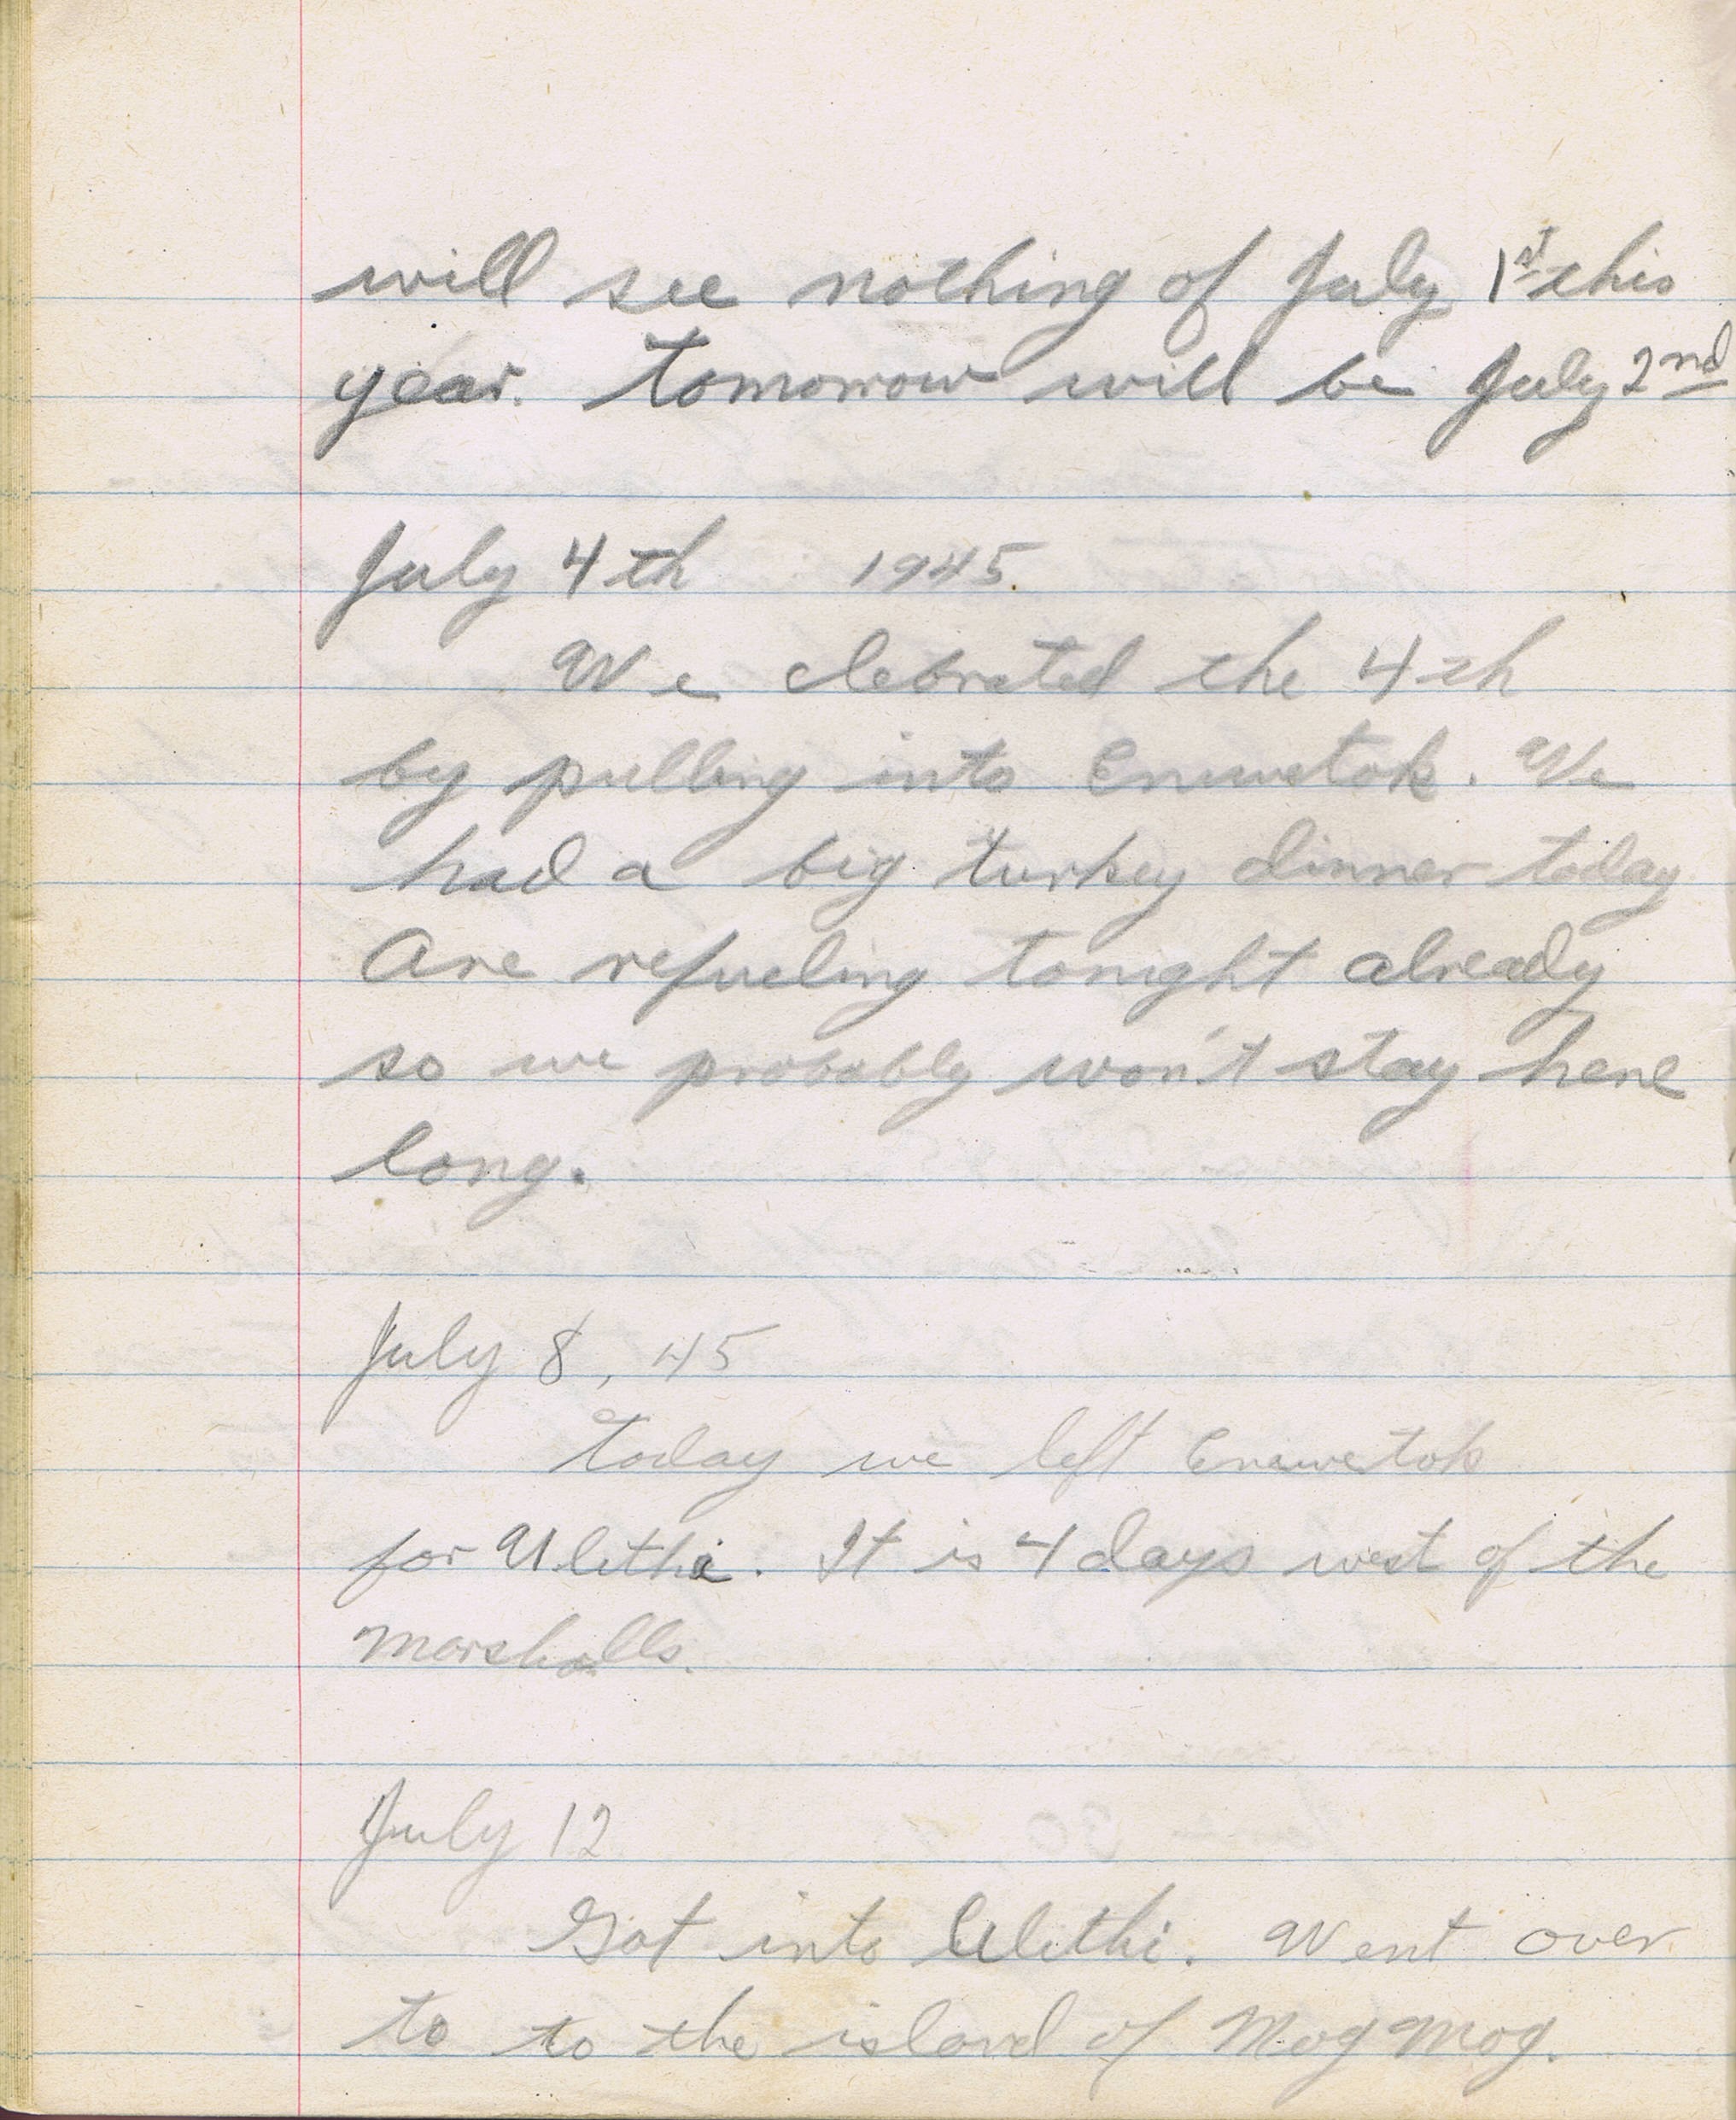 will see nothing of July 1st this
year. Tomorrow will be July 2nd
July 4th 1945.
We clebrated the 4th
by pulling into Enuwetok. We
had a big turkey dinner today
Are refueling tonight already
so we probably won't stay here
long.
July 8, 45
Today we left Enewetok
for Ulithi. It is 4 days west of the
Marshalls.
July 12
Got into Ulithi. Went over
to to the island of Mog Mog.